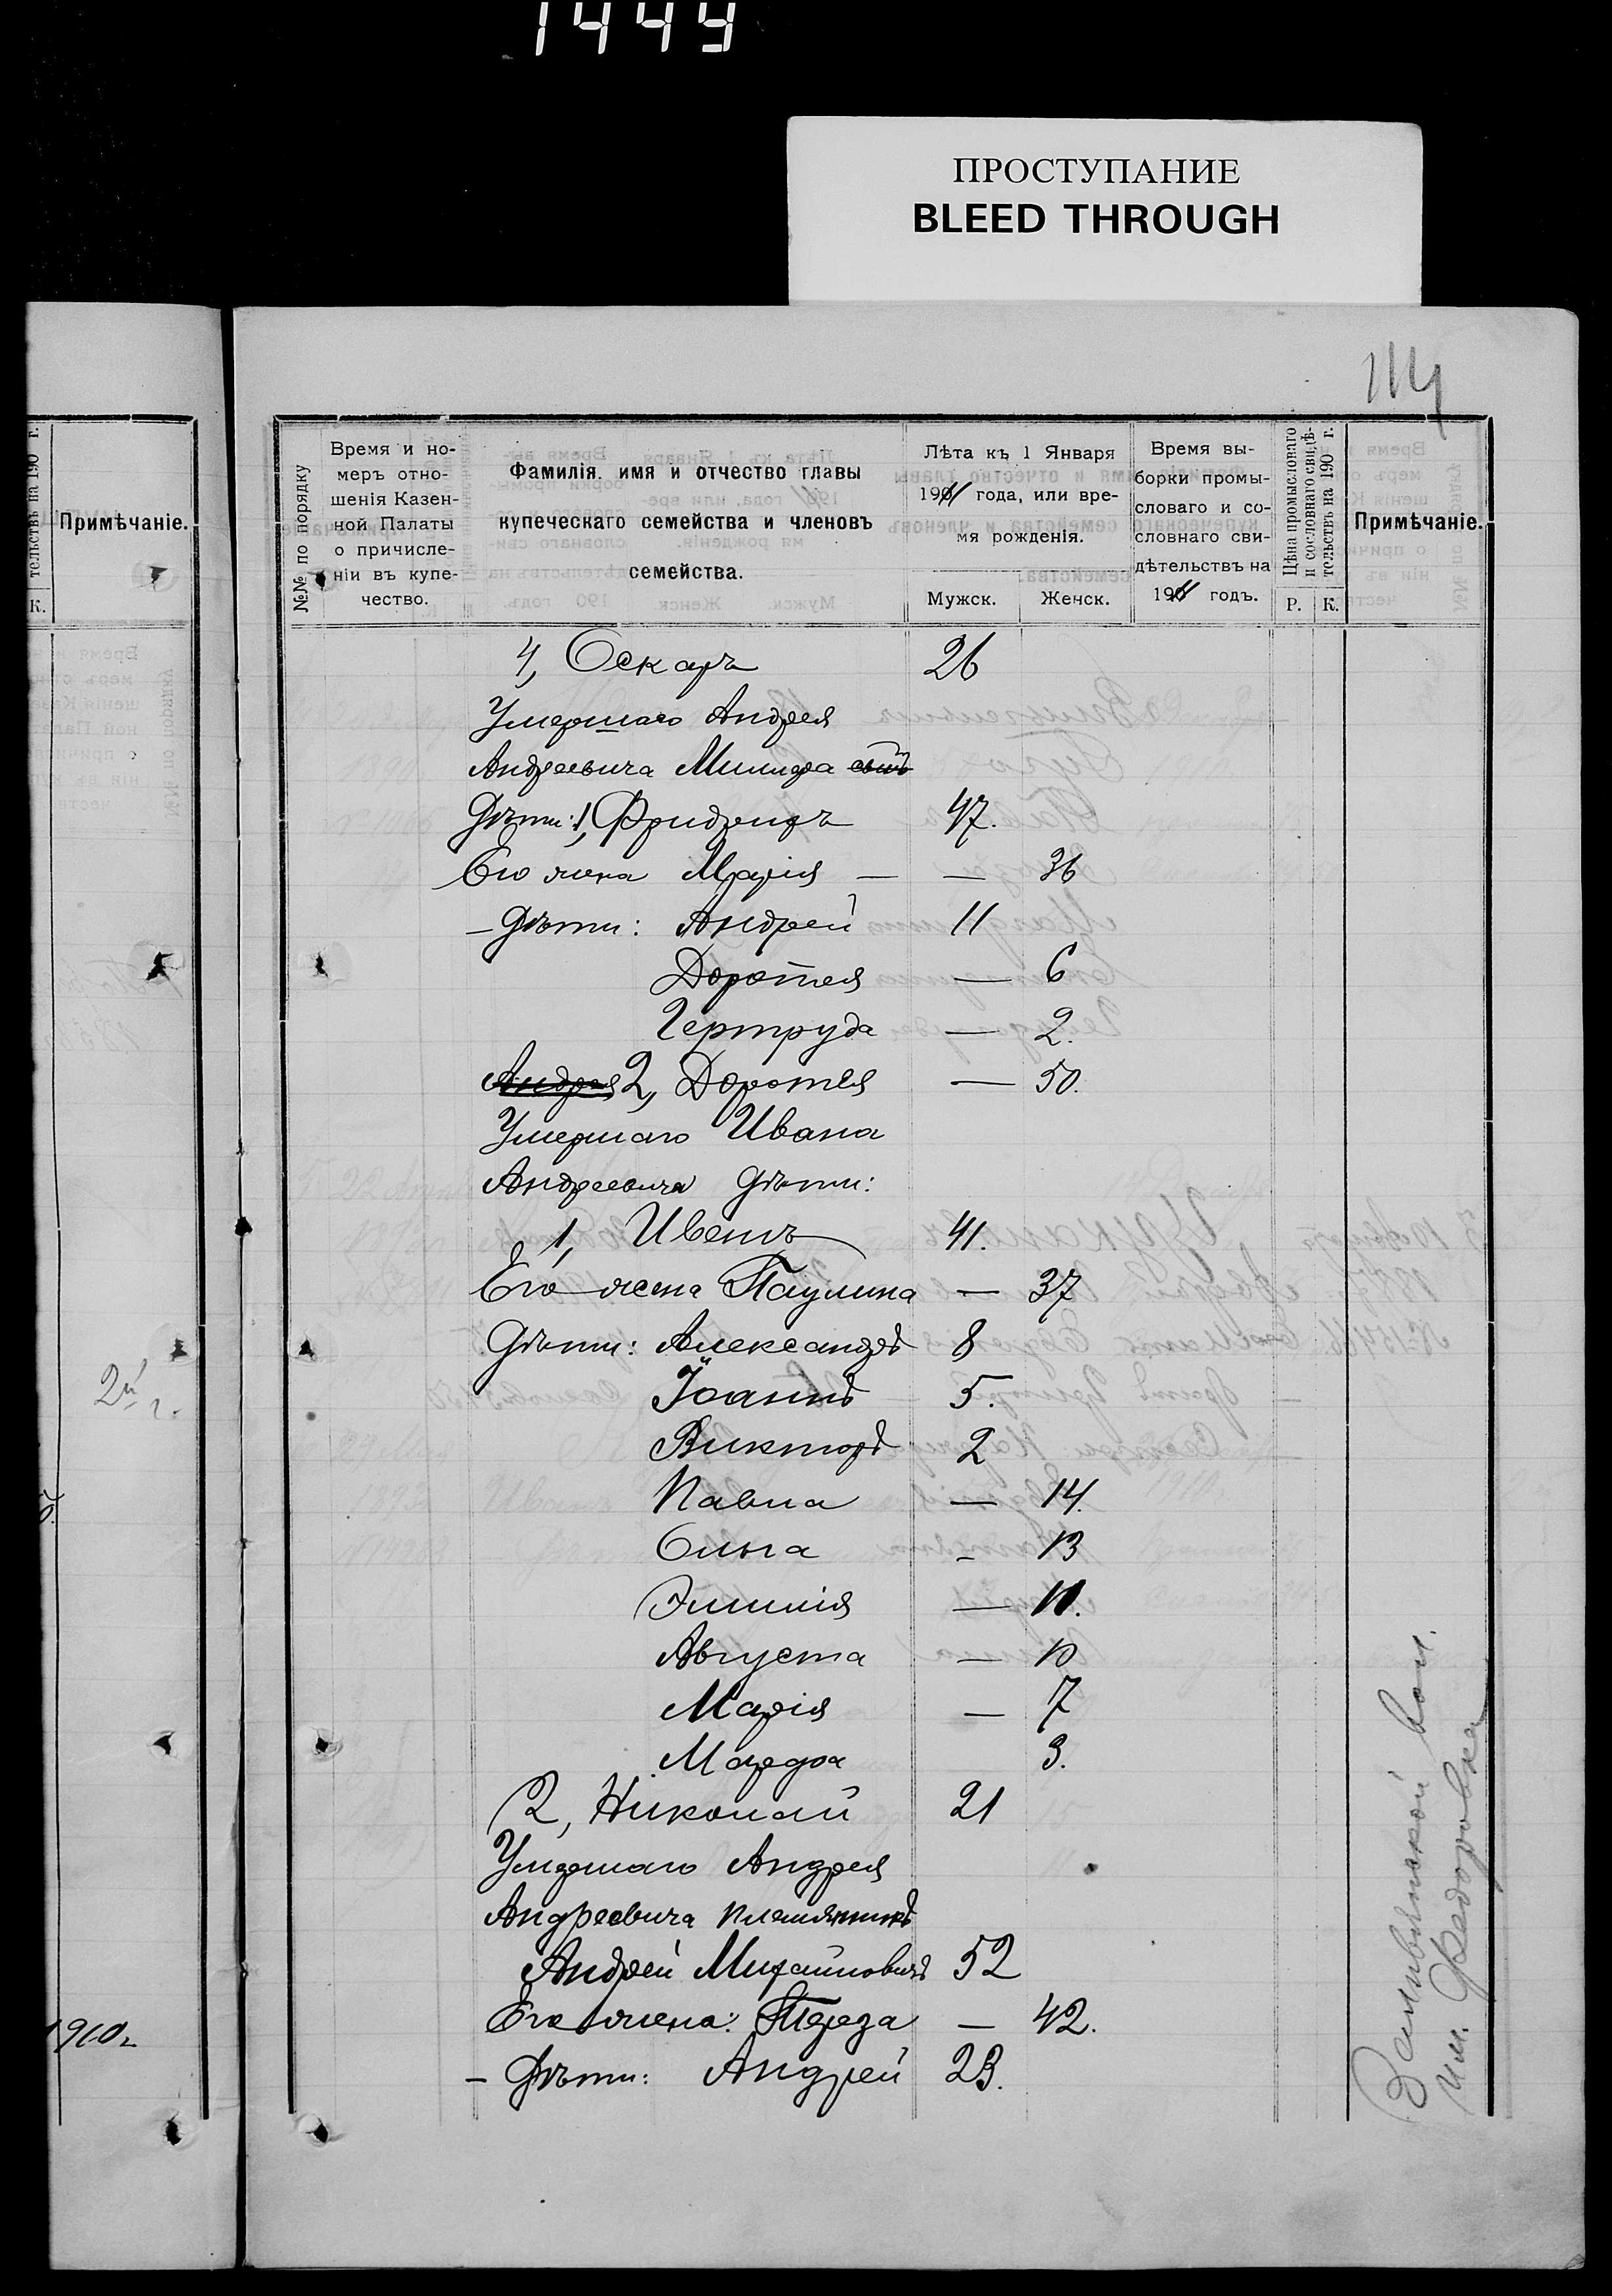 1449
ПРОСТУПАНИЕ
BLEED THROUGH
114
тельствъ на 190 г.
К.
Примѣчаніе.
2й г.
1910 г.
№№ по порядку
Время и но-
меръ отно-
шенія Казен-
ной Палаты
о причисле-
ніи въ купе-
чество.
Фамилія, имя и отчество главы
купеческаго семейства и членовъ
семейства.
Лѣта къ 1 Января
1911 года, или вре-
мя рожденія.
Мужск. Женск.
Время вы-
борки промы-
словаго и со-
словнаго сви-
дѣтельствъ на
1911 годъ.
Цѣна промысловаго
и сословнаго свидѣ-
тельствъ на 190 г.
Р. К.
Примѣчаніе.
4, Оскаръ 26
Умершаго Андрея
Андреевича Миллера сынъ
Дѣти: 1, Фридрихъ 47.
Его жена Марія — — 36
— Дѣти: Андрей 11
Доротея — 6
Гертруда — 2.
Андрея 2, Доротея — 50.
Умершаго Ивана
Андреевича Дѣти:
1, Иванъ 41.
Его жена Паулина — 37
Дѣти: Александръ 8
Іоаннъ 5.
Викторъ 2
Павла — 14.
Ольга — 13
Эмилія — 11.
Августа — 10
Марія — 7
3.
2, Николай 21
Умершаго Андрея
Андреевича племянникъ
Андрей Михайловичъ 52
Его жена: Тереза — 42.
— Дѣти: Андрей 23.
вол.
им. Федоровка